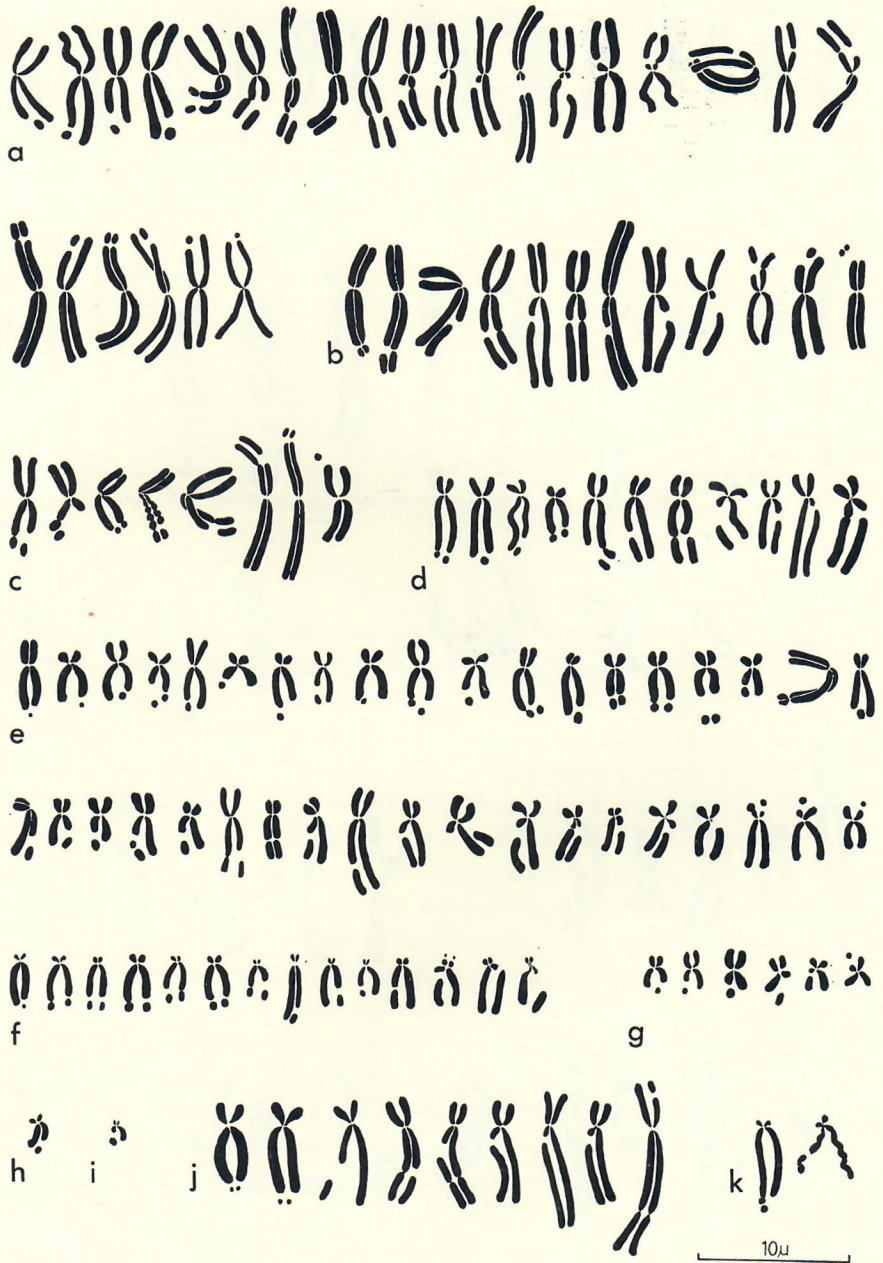 a
b
c
d
e
f
g
h
i
j
k
10μ